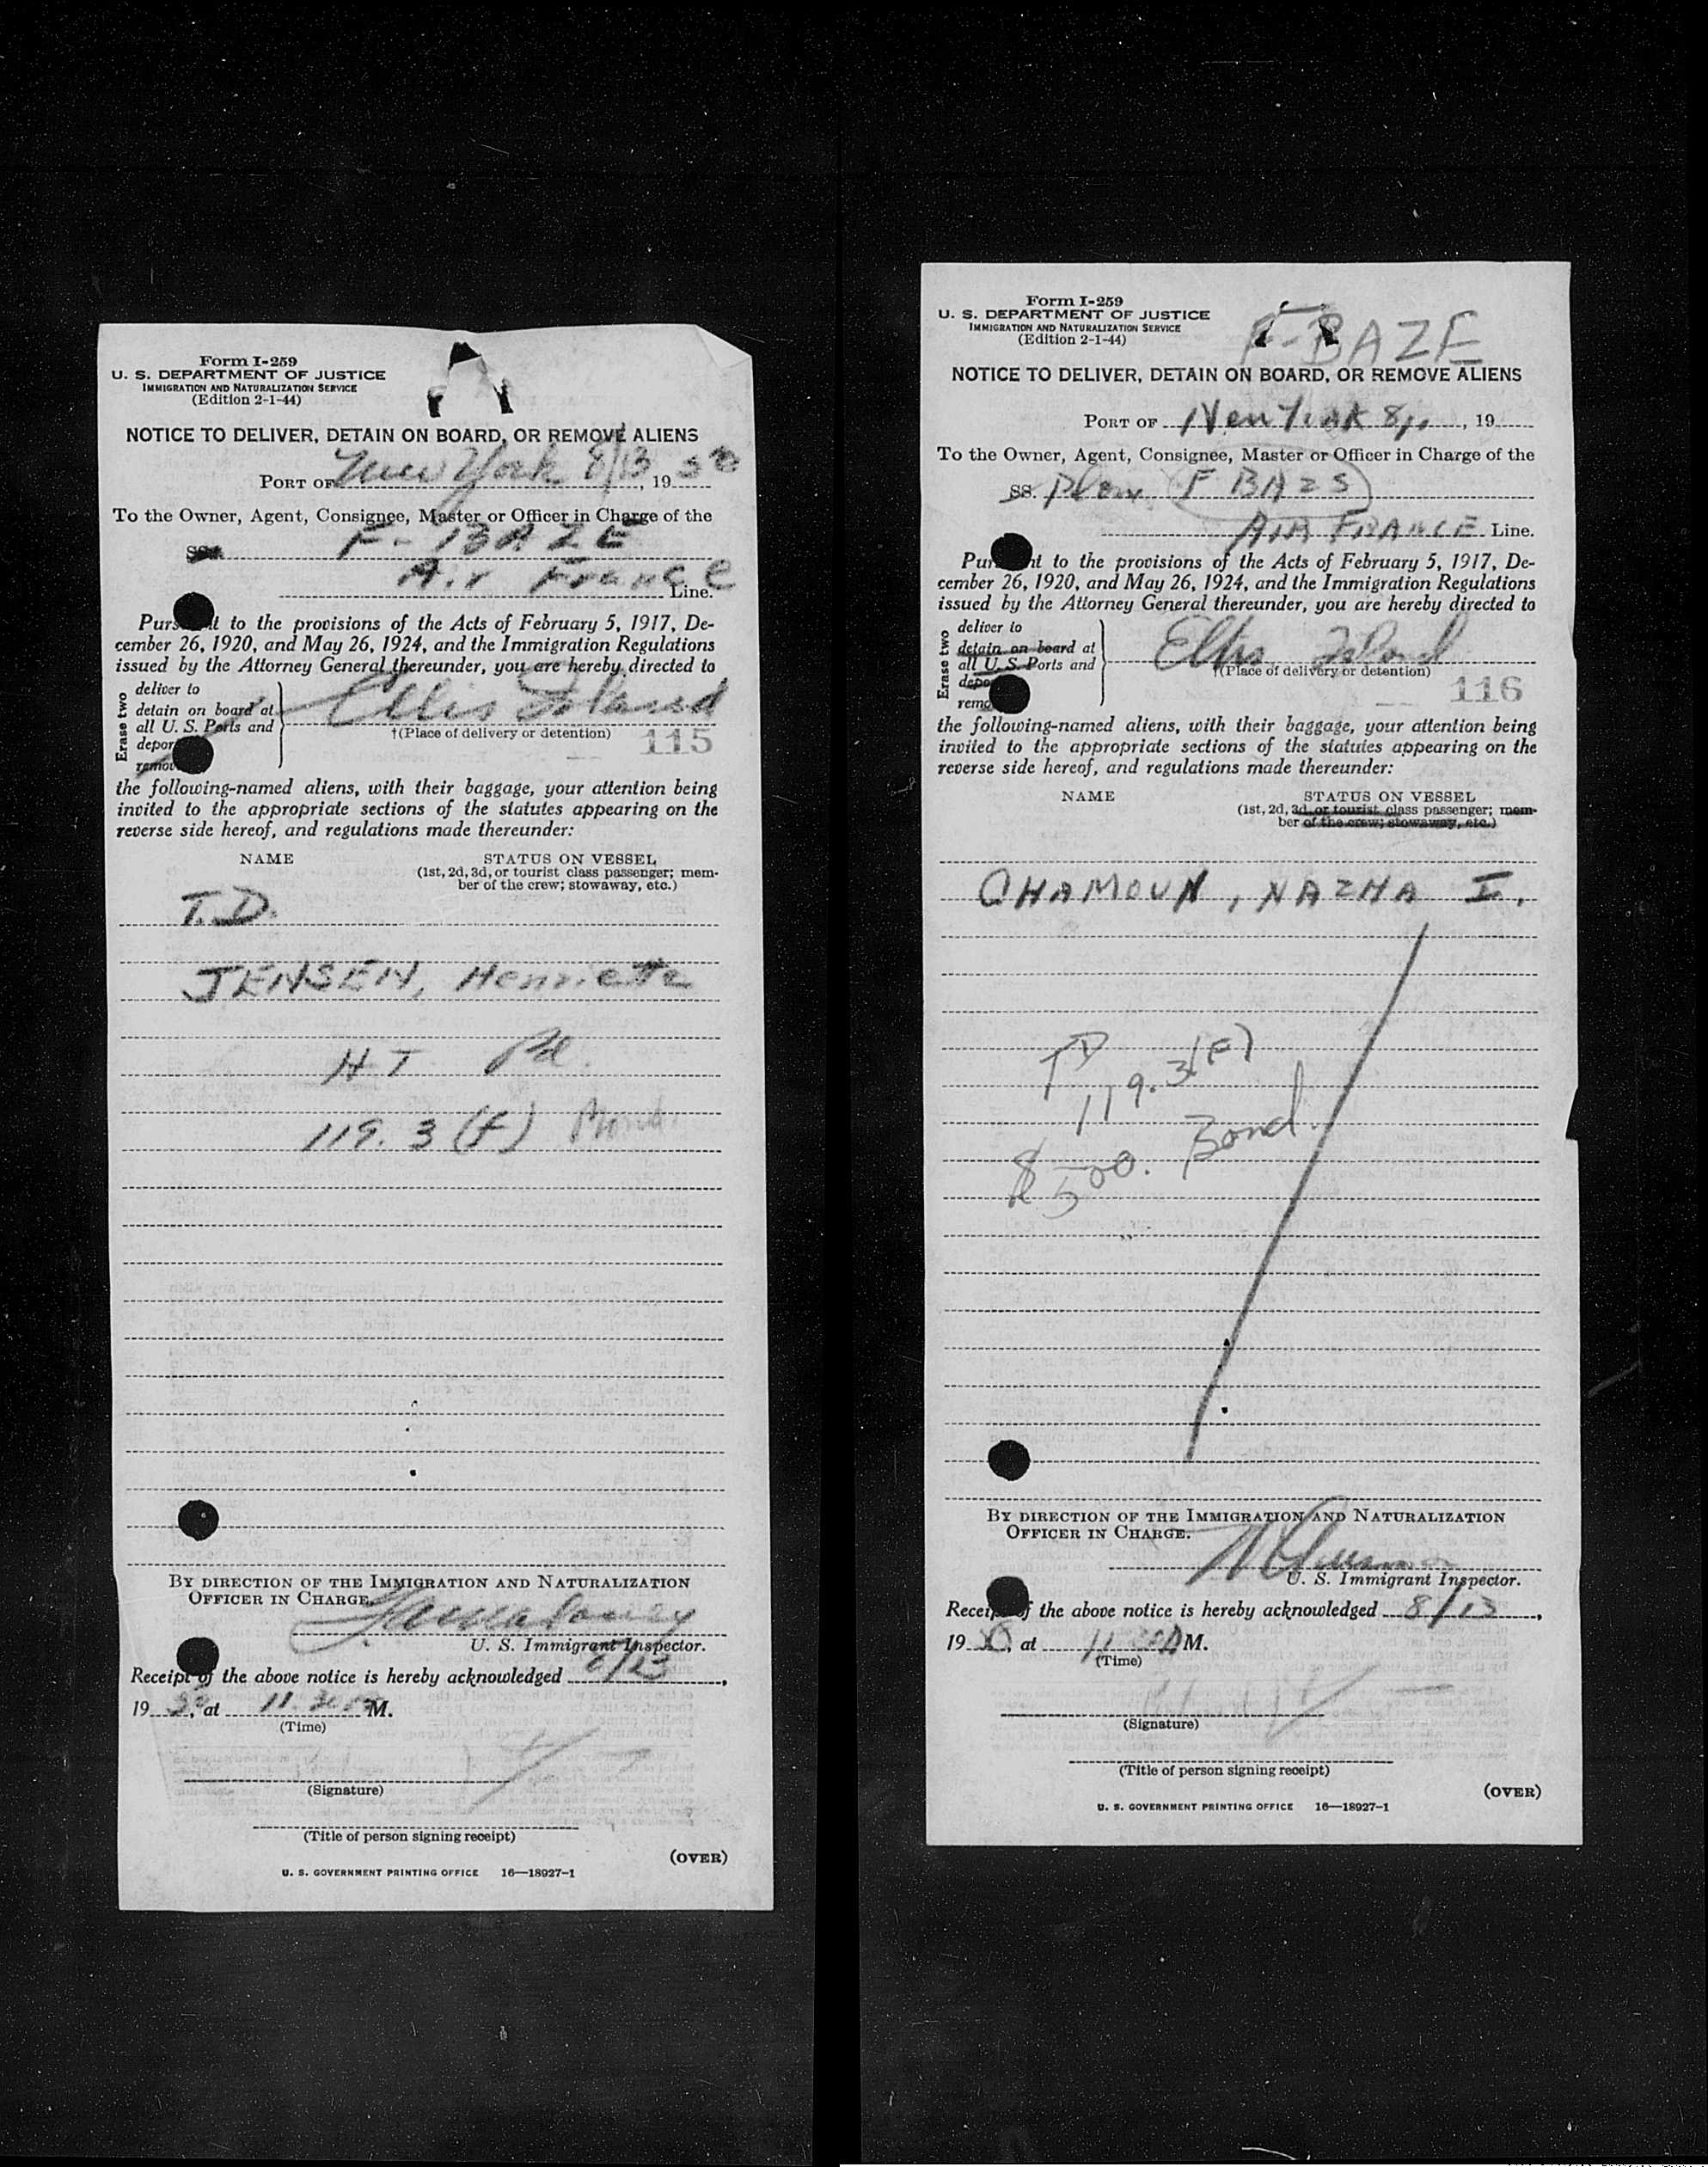 Form I-259
U. S. DEPARTMENT OF JUSTICE
IMMIGRATION AND NATURALIZATION SERVICE
(Edition 2-1-44)
NOTICE TO DELIVER, DETAIN ON BOARD, OR REMOVE ALIENS
PORT OF New York 8/13, 19 50
To the Owner, Agent, Consignee, Master or Officer in Charge of the
SS. F-BAZE
Air France Line.
Pursuant to the provisions of the Acts of February 5, 1917, De-
cember 26, 1920, and May 26, 1924, and the Immigration Regulations
issued by the Attorney General thereunder, you are hereby directed to
Erase two
deliver to
detain on board at
all U. S. Ports and
depor
remov
Ellis Island
†(Place of delivery or detention) 115
the following-named aliens, with their baggage, your attention being
invited to the appropriate sections of the statutes appearing on the
reverse side hereof, and regulations made thereunder:
NAME STATUS ON VESSEL
(1st, 2d, 3d, or tourist class passenger; mem-
ber of the crew; stowaway, etc.)
T.D.
JENSEN, Henriette
HT Pd.
119. 3 (f) Bond
BY DIRECTION OF THE IMMIGRATION AND NATURALIZATION
OFFICER IN CHARGE.
U. S. Immigrant Inspector.
Receipt of the above notice is hereby acknowledged 8/13,
19 50, at 11 M.
(Time)
(Signature)
(Title of person signing receipt)
(OVER)
U. S. GOVERNMENT PRINTING OFFICE 16—18927-1
Form I-259
U. S. DEPARTMENT OF JUSTICE
IMMIGRATION AND NATURALIZATION SERVICE
(Edition 2-1-44)
F-BAZE
NOTICE TO DELIVER, DETAIN ON BOARD, OR REMOVE ALIENS
PORT OF New York, 19
To the Owner, Agent, Consignee, Master or Officer in Charge of the
SS. Plane F BAZS
AIR FRANCE Line.
Pursuant to the provisions of the Acts of February 5, 1917, De-
cember 26, 1920, and May 26, 1924, and the Immigration Regulations
issued by the Attorney General thereunder, you are hereby directed to
Erase two
deliver to
detain on board at
all U. S. Ports and
depo
remo
Ellis Island
†(Place of delivery or detention)
116
the following-named aliens, with their baggage, your attention being
invited to the appropriate sections of the statutes appearing on the
reverse side hereof, and regulations made thereunder:
NAME STATUS ON VESSEL
(1st, 2d, 3d, or tourist class passenger; mem-
ber of the crew; stowaway, etc.)
CHAMOUN, NAZHA I.
TD
119.3(F)
$500. Bond.
BY DIRECTION OF THE IMMIGRATION AND NATURALIZATION
OFFICER IN CHARGE.
U. S. Immigrant Inspector.
Receipt of the above notice is hereby acknowledged 8/13,
19 50, at 11 M.
(Time)
(Signature)
(Title of person signing receipt)
(OVER)
U. S. GOVERNMENT PRINTING OFFICE 16—18927-1